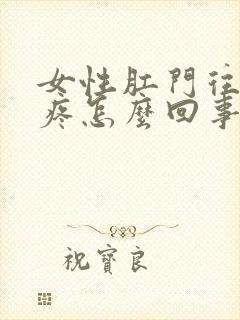 女性肛門往
疼怎麼回事
祝寶良